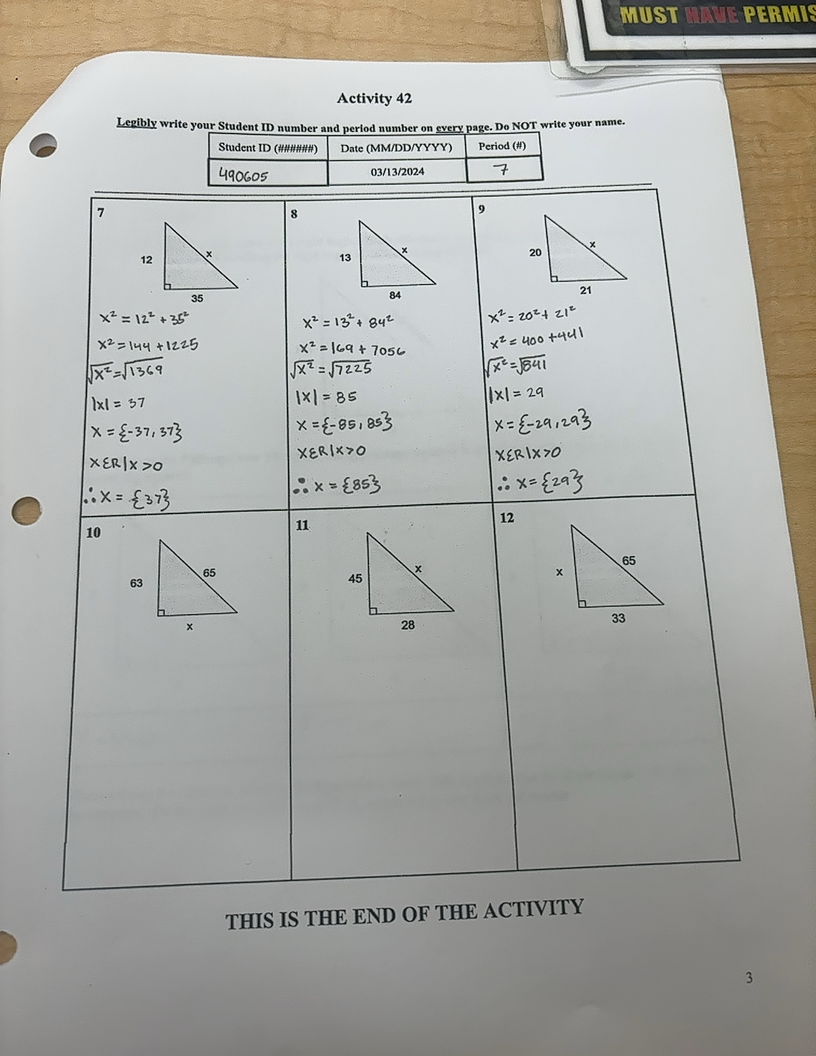 MUST HAVE PERMIS
Activity 42
Legibly write your Student ID number and period number on every page. Do NOT write your name.
Student ID (######) Date (MM/DD/YYYY) Period (#)
490605 03/13/2024 7
7
12
x
35
x² = 12² + 35²
x² = 144 + 1225
√x² = √1369
|x| = 37
x = {-37, 37}
xεR|x>0
∴ x = {37}
8
13
x
84
x² = 13² + 84²
x² = 169 + 7056
√x² = √7225
|x| = 85
x = {-85, 85}
xεR|x>0
∴ x = {85}
9
20
x
21
x² = 20² + 21²
x² = 400 + 441
√x² = √841
|x| = 29
x = {-29, 29}
xεR|x>0
∴ x = {29}
10
63
65
x
11
45
x
28
12
x
65
33
THIS IS THE END OF THE ACTIVITY
3